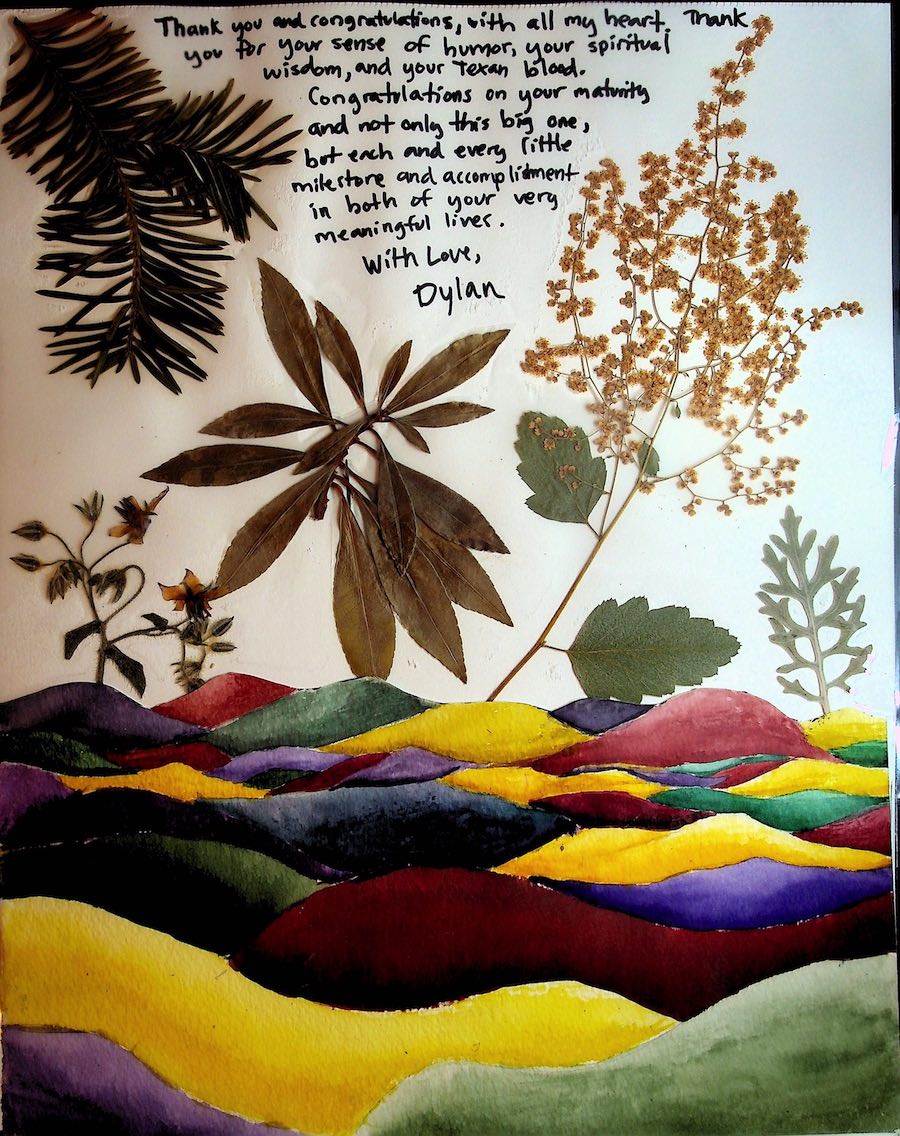 Thank you and congratulations, with all my heart. Thank
you for your sense of humor, your spiritual
wisdom, and your Texan blood.
Congratulations on your maturity
and not only this big one,
but each and every little
milestone and accomplishment
in both of your very
meaningful lives.
With Love,
Dylan